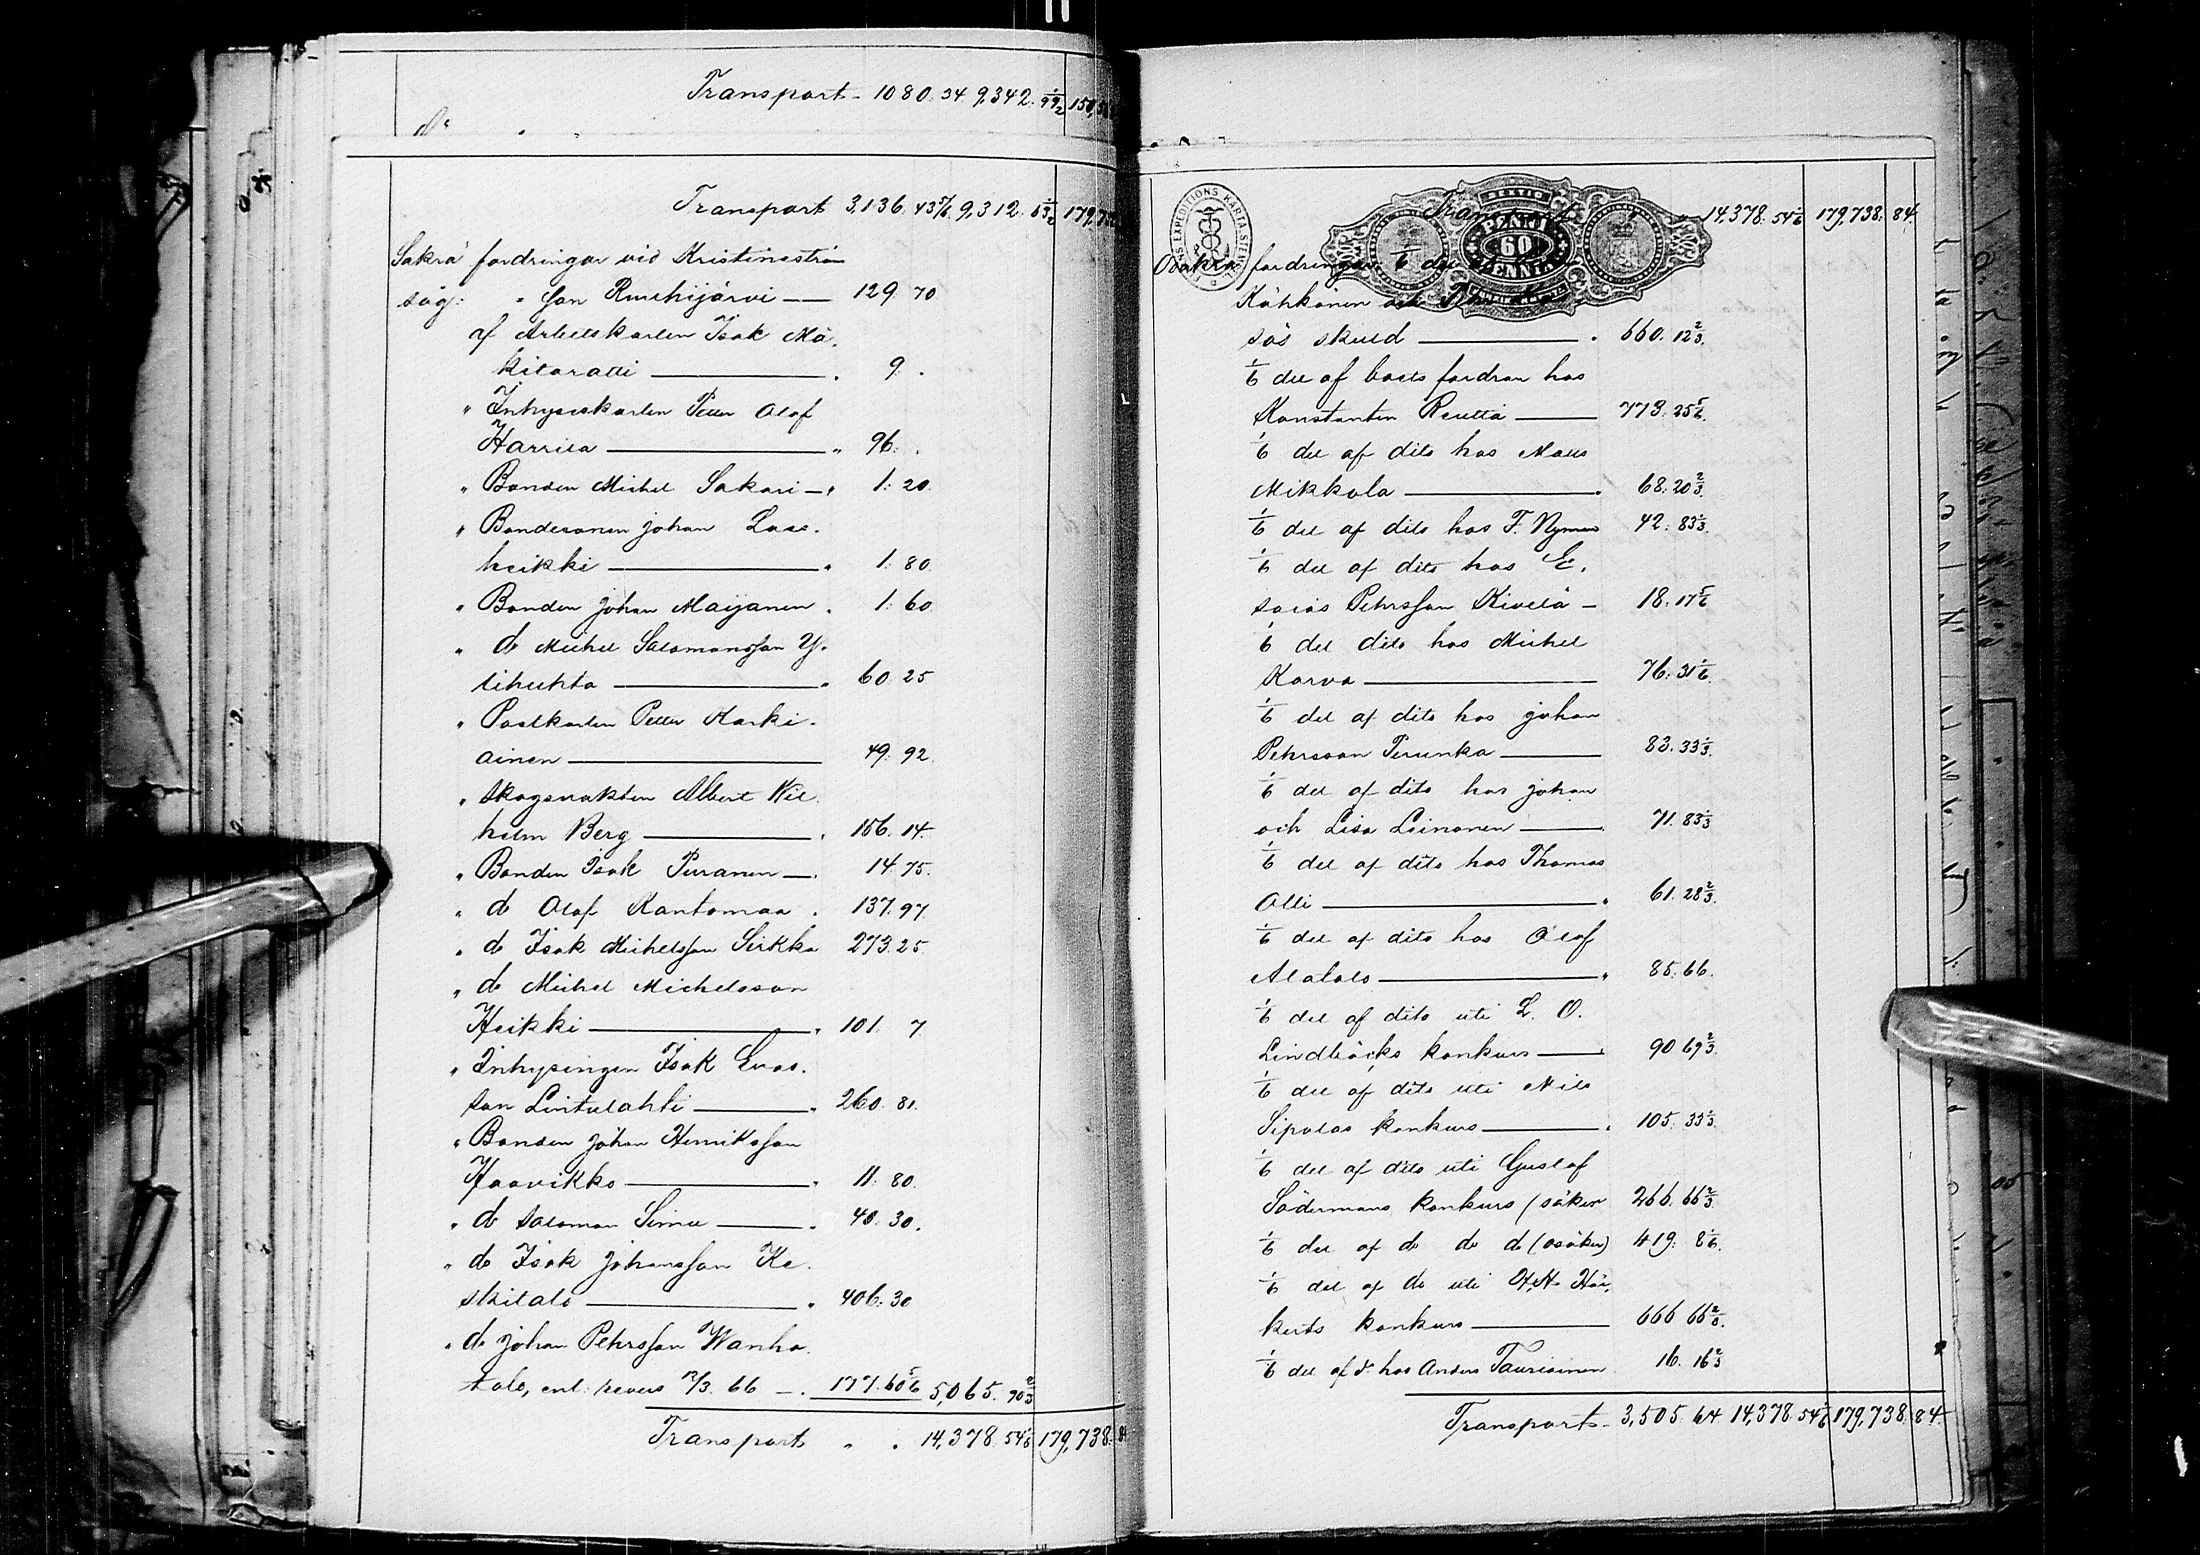 Transport 1080. 34. 9,342. 99½
d:o
Transport 3,136. 43 5/6 9,312. 63½ 179,738
Säkra fordringar vid Kristineström
såg: " Jan Ruuhijärvi — 129. 70
af Arbetskarlen Isak Mä,
kitaratti — 9 .
" Inhyseskarlen Petter Olof
Harrila — " 96. .
" Bonden Michel Sakari — " 1. 20.
" Bondesonen Johan Lass.
heikki — " 1. 80.
" Bonden Johan Maijanen . 1. 60
" d:o Michel Salomonsson Y.
lihuhta — " 60. 25
" Postkarlen Petter Karki.
ainen — 49. 92.
" Skogsvakten Albert Wil.
helm Berg — . 156. 14.
" Bonden Isak Puranen — . 14. 75.
" d:o Olof Rantamaa . 137. 97.
" d:o Isak Michelsson Sirkka 273. 25
" d:o Michel Michelsson
Heikki — . 101. 7.
" Inhysingen Isak Evas.
son Lintulahti — . 260. 81.
" Bonden Johan Henriksson
Haavikko — . 11. 80.
" d:o Salomon Simu — . 40. 30.
" d:o Isak Johansson Ke.
skitalo — " 406. 30
" d:o Johan Pehrsson Wanha.
talo, enl: revers 12/3. 66 — . 177. 60 5/6 5,065. 90 2/3
Transport " . 14,378. 54 1/6 179,738. 84
Transport " " 14,378. 54 1/6 179,738. 84
LANS EXPEDITIONS KARTA STEMPEL
PENKI
60
PENNIA
Osäkra fordringar 1/6 del
Kähkönen och
sös skuld — . 660. 12 2/3.
1/6 del af boets fordran hos
Konstantin Reutta — 773. 25 5/6.
1/6 del af dito hos Mats
Mikkola — . 68. 20 2/3.
1/6 del af dito hos F. Nyman 42. 83 1/3.
1/6 del af dito hos E.
saias Pehrsson Kivelä — 18. 17 5/6
1/6 del dito hos Michel
Karva — 76. 31 1/6.
1/6 del af dito hos Johan
Pehrsson Perunka — 83. 33 1/3.
1/6 del af dito hos Johan
och Lisa Leinonen — 71. 83 1/3
1/6 del af dito hos Thomas
Olli — " 61. 28 2/3.
1/6 del af dito hos Olof
Alatalo — " 85. 66.
1/6 del af dito uti L. O.
Lindbäcks konkurs — " 90. 69 2/3.
1/6 del af dito uti Nils
Sipolas konkurs — . 105. 33 1/3
1/6 del af dito uti Gustaf
Södermans konkurs (säker 266. 66 2/3
1/6 del af d:o d:o d:o (osäker) 419. 8 1/6.
1/6 del af d:o uti
kerts konkurs — 666. 66 2/3.
1/6 del af d:o hos Anders Tauriainen 16. 16 2/3
Transport 3,505. 64 14,378. 54 1/6 179,738. 84